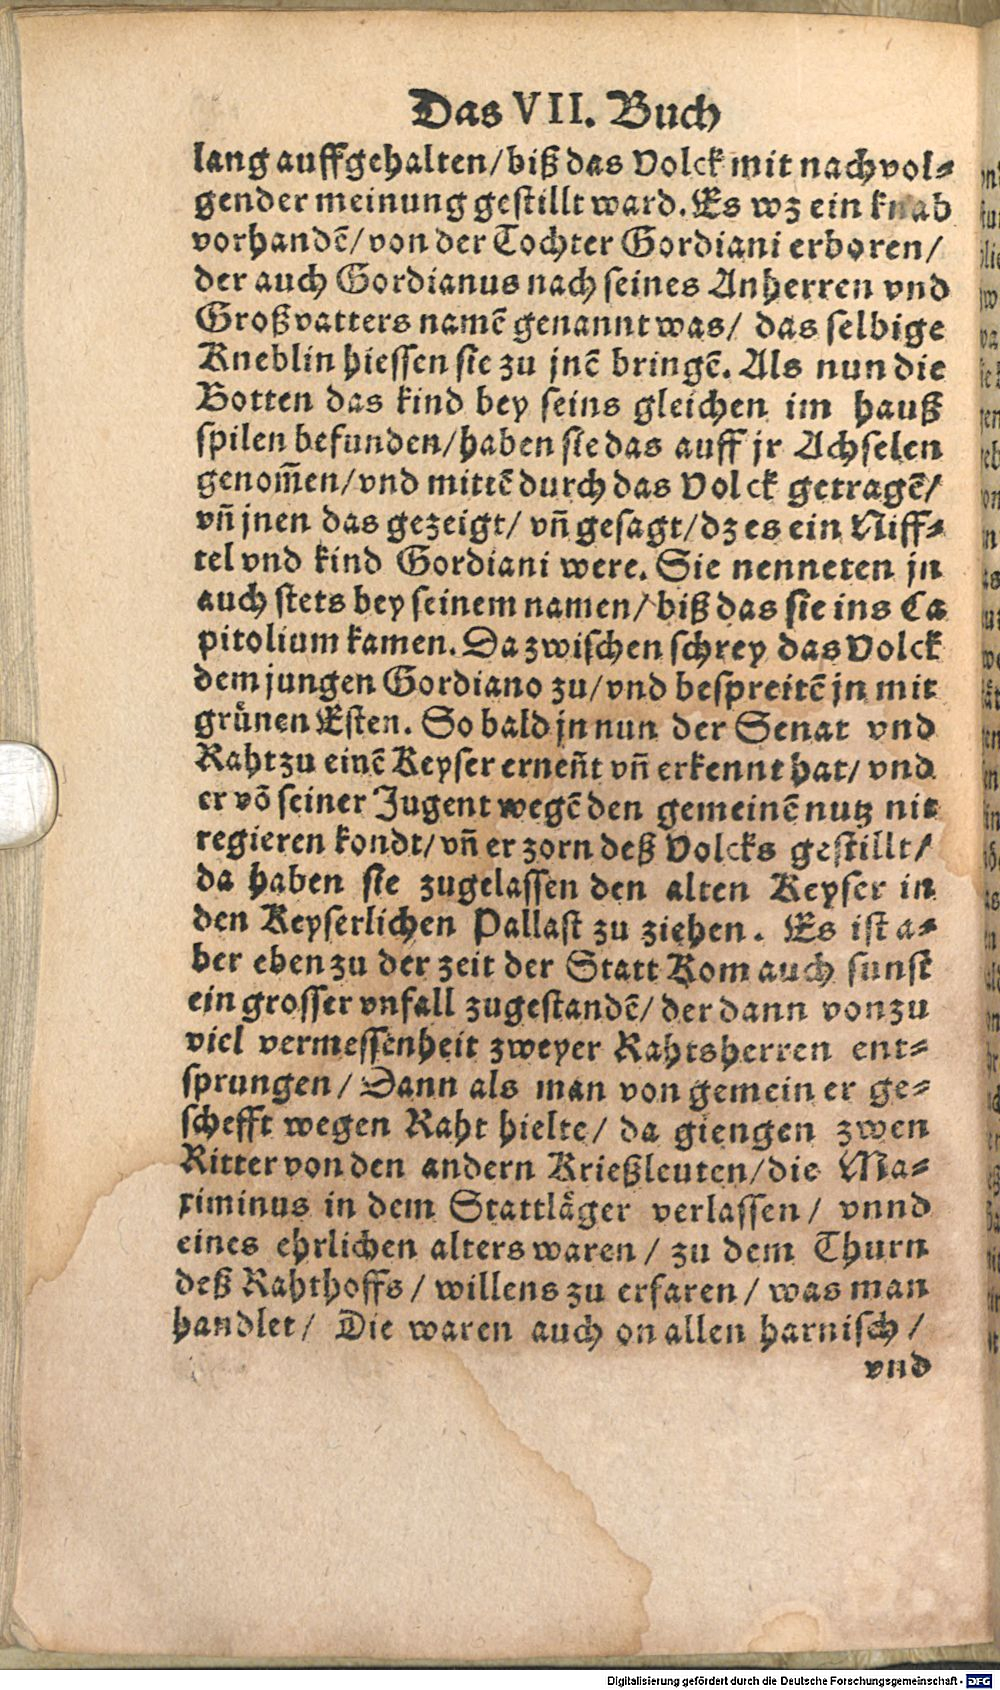 Das VII. Buch
lang auffgehalten/biß das Volck mit nachvol⸗
gender meinung gestillt ward. Es wz ein knab
vorhandẽ/von der Tochter Gordiani erboren/
der auch Gordianus nach seines Anherren vnd
Großvatters namẽ genannt was/ das selbige
Kneblin hiessen sie zu jnẽ bringẽ. Als nun die
Botten das kind bey seins gleichen im hauß
spilen befunden/haben sie das auff jr Achselen
genom̃en/vnd mittẽ durch das Volck getragẽ/
vñ jnen das gezeigt/ vñ gesagt/dz es ein Niff⸗
tel vnd kind Gordiani were. Sie nenneten jn
auch stets bey seinem namen/ biß das sie ins Ca
pitolium kamen. Da zwischen schrey das Volck
dem jungen Gordiano zu/vnd bespreitẽ jn mit
grünen Esten. So bald jn nun der Senat vnd
Raht zu einẽ Keyser erneñt vñ erkennt hat/ vnd
er võ seiner Jugent wegẽ den gemeinẽ nutz nit
regieren kondt/vñ er zorn deß Volcks gestillt/
da haben sie zugelassen den alten Keyser in
den Keyserlichen Pallast zu ziehen. Es ist a⸗
ber eben zu der zeit der Statt Rom auch sunst
ein grosser vnfall zugestandẽ/ der dann von zu
viel vermessenheit zweyer Rahtsherren ent⸗
sprungen/ Dann als man von gemein er ge⸗
schefft wegen Raht hielte/ da giengen zwen
Ritter von den andern Krießleuten/die Ma⸗
ximinus in dem Stattläger verlassen/ vnnd
eines ehrlichen alters waren/ zu dem Thurn
deß Rahthoffs/ willens zu erfaren/ was man
handlet/ Die waren auch on allen harnisch/
vnd
Digitalisierung gefördert durch die Deutsche Forschungsgemeinschaft - DFG